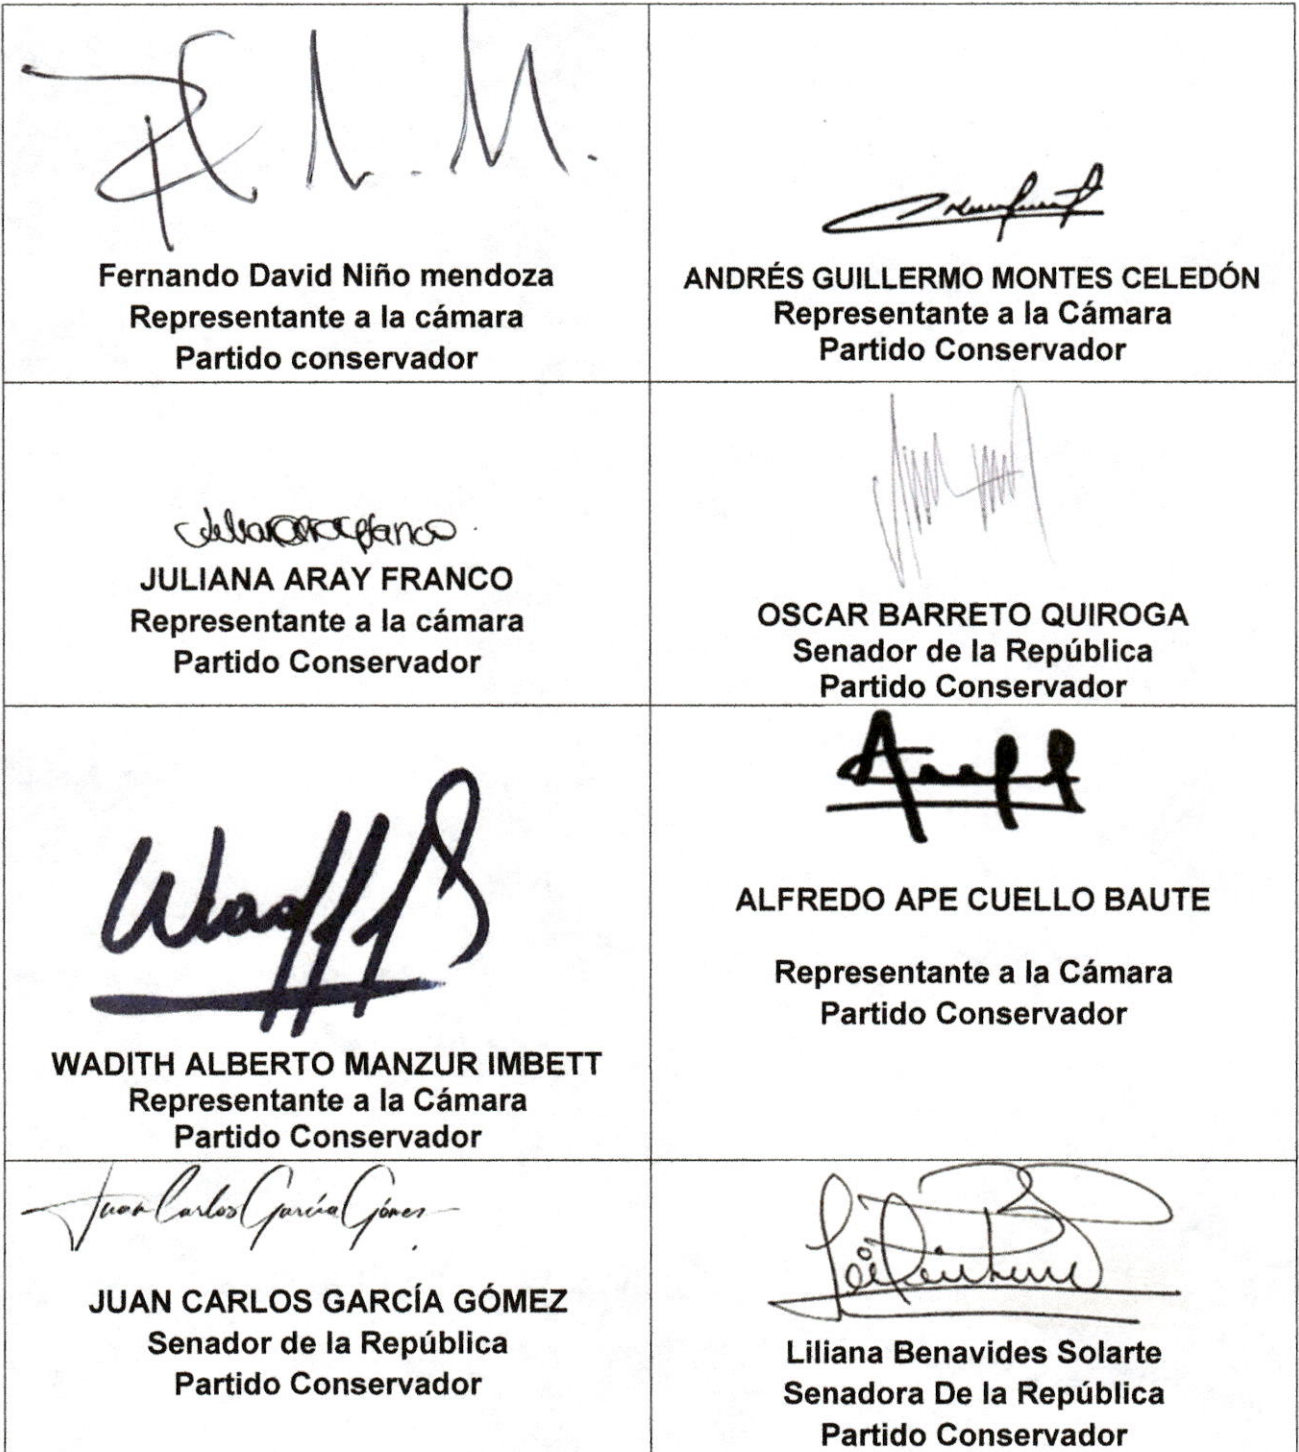 Fernando David Niño mendoza
Representante a la cámara
Partido conservador
ANDRÉS GUILLERMO MONTES CELEDÓN
Representante a la Cámara
Partido Conservador
JULIANA ARAY FRANCO
Representante a la cámara
Partido Conservador
OSCAR BARRETO QUIROGA
Senador de la República
Partido Conservador
WADITH ALBERTO MANZUR IMBETT
Representante a la Cámara
Partido Conservador
ALFREDO APE CUELLO BAUTE
Representante a la Cámara
Partido Conservador
Juan Carlos García Gómez
JUAN CARLOS GARCÍA GÓMEZ
Senador de la República
Partido Conservador
Liliana Benavides Solarte
Senadora De la República
Partido Conservador